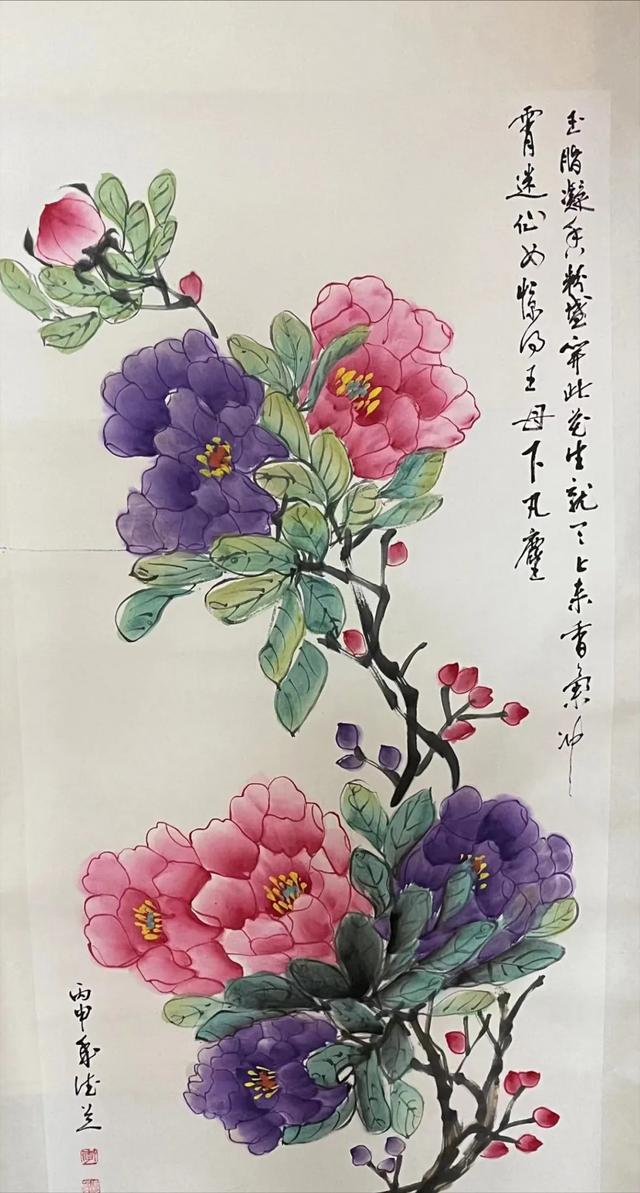 玉脂凝香粉盛开此花生就天上来香气冲
霄迷仙女惊得王母下凡尘
丙申年德兰